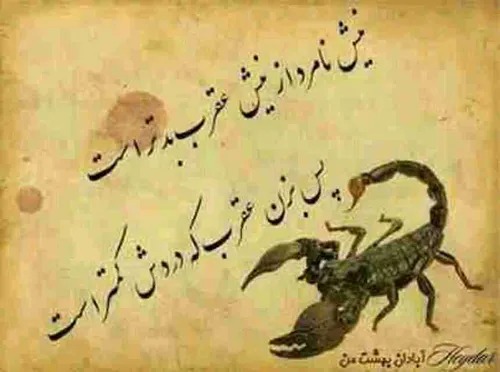 نیش نامرد از نیش عقرب بدتر است
پس بزن عقرب که دردش کمتر است
آبادان بهشت من Heydar